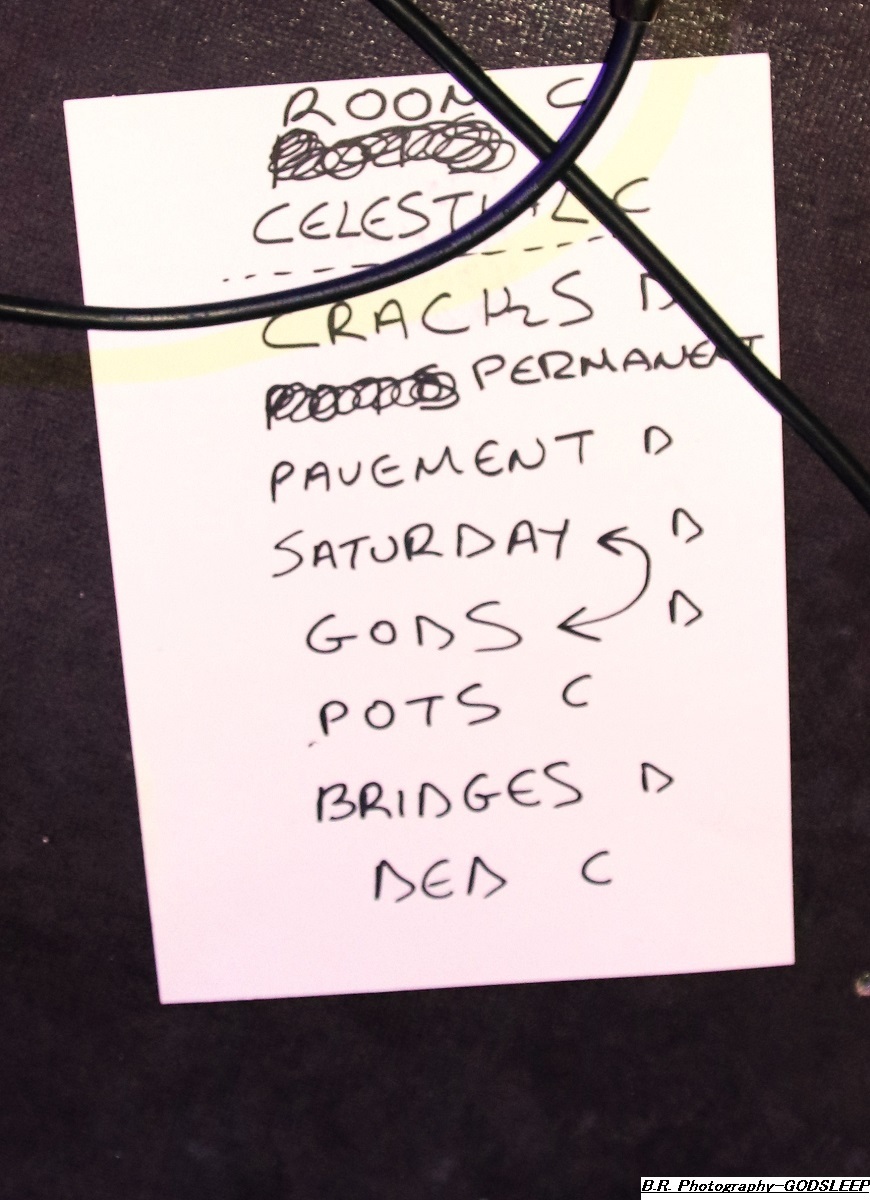 ROOM C
CELESTIAL C
CRACKS D
PERMANENT
PAVEMENT D
SATURDAY D
GODS D
POTS C
BRIDGES D
DED C
B.R. Photography-GODSLEEP